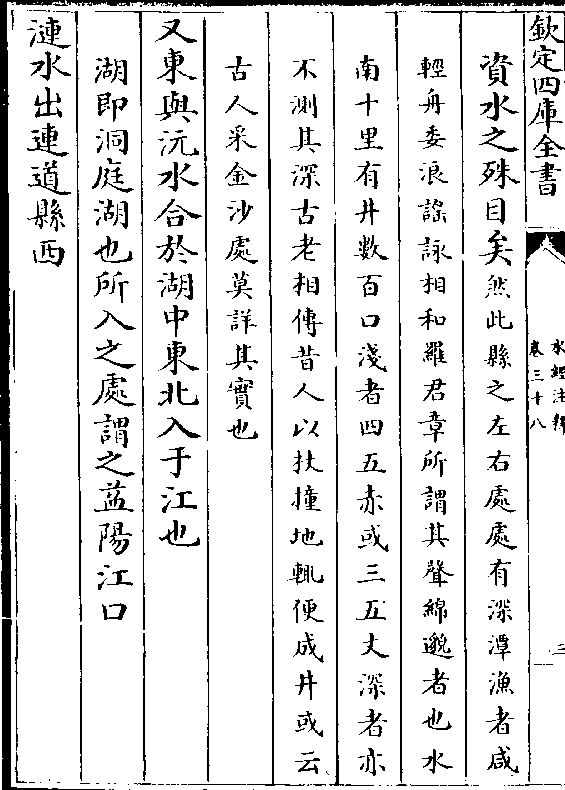 欽定四庫全書
水經注釋
卷三十八
三
資水之殊目矣然此縣之左右處處有深潭漁者咸
輕舟委浪謠詠相和羅君章所謂其聲綿邈者也水
南十里有井數百口淺者四五赤或三五丈深者亦
不測其深古老相傳昔人以扙撞地輒便成井或云
古人采金沙處莫詳其實也
又東與沅水合於湖中東北入于江也
湖即洞庭湖也所入之處謂之益陽江口
漣水出連道縣西